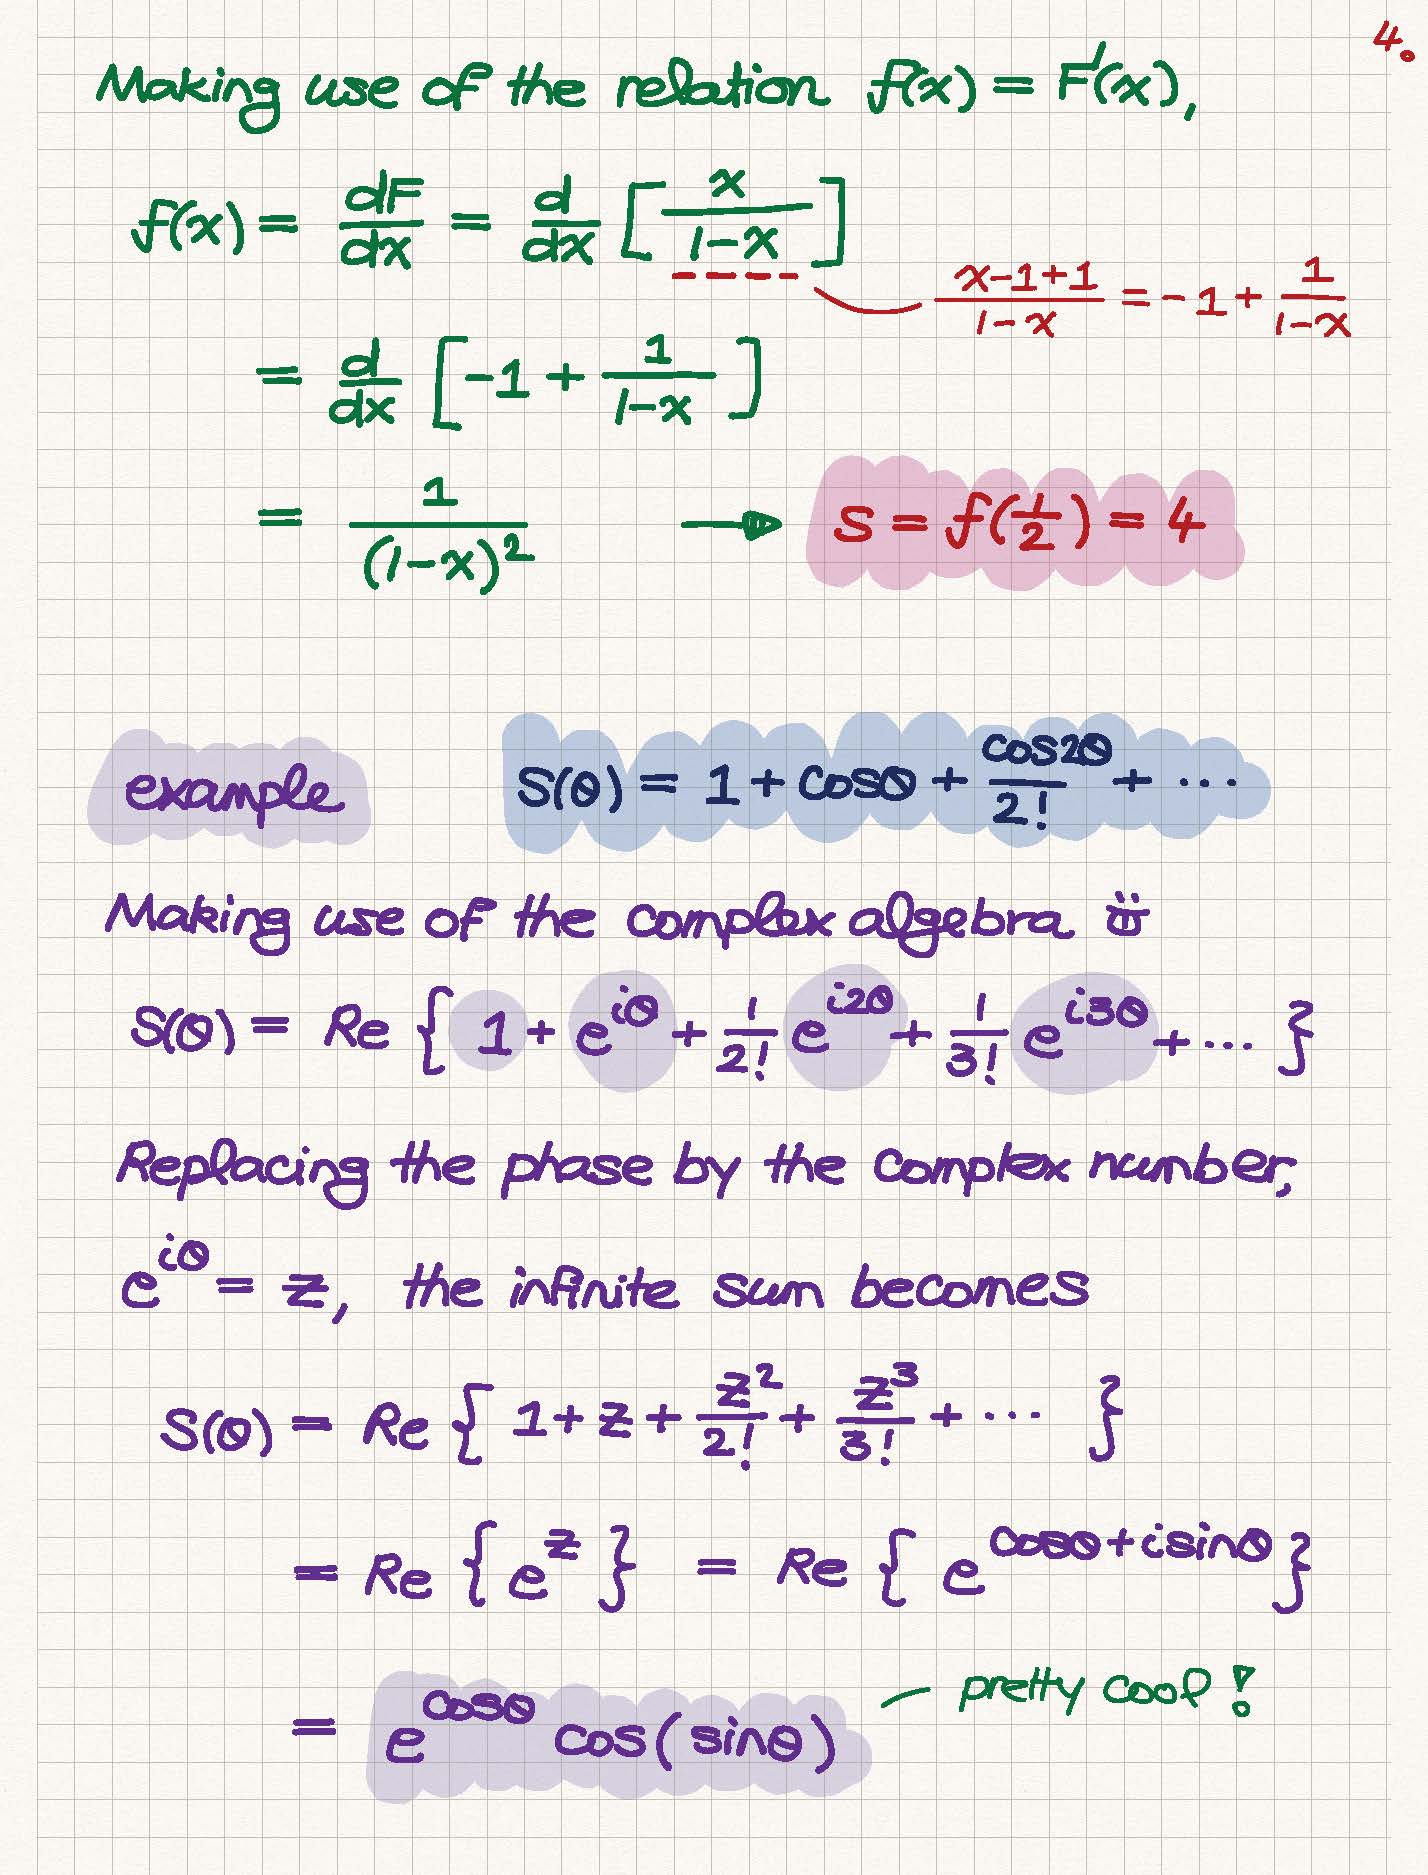 4.
Making use of the relation f(x) = F'(x),
f(x) = dF/dx = d/dx [x/(1-x)]
(x-1+1)/(1-x) = -1 + 1/(1-x)
= d/dx [-1 + 1/(1-x)]
= 1/(1-x)² → S = f(1/2) = 4
example S(θ) = 1 + cosθ + cos2θ/2! + ...
Making use of the complex algebra
S(θ) = Re { 1 + e^{iθ} + 1/2! e^{i2θ} + 1/3! e^{i3θ} + ... }
Replacing the phase by the complex number,
e^{iθ} = z, the infinite sum becomes
S(θ) = Re { 1 + z + z²/2! + z³/3! + ... }
= Re { e^z } = Re { e^{cosθ+isinθ} }
= e^{cosθ} cos(sinθ) — pretty cool!